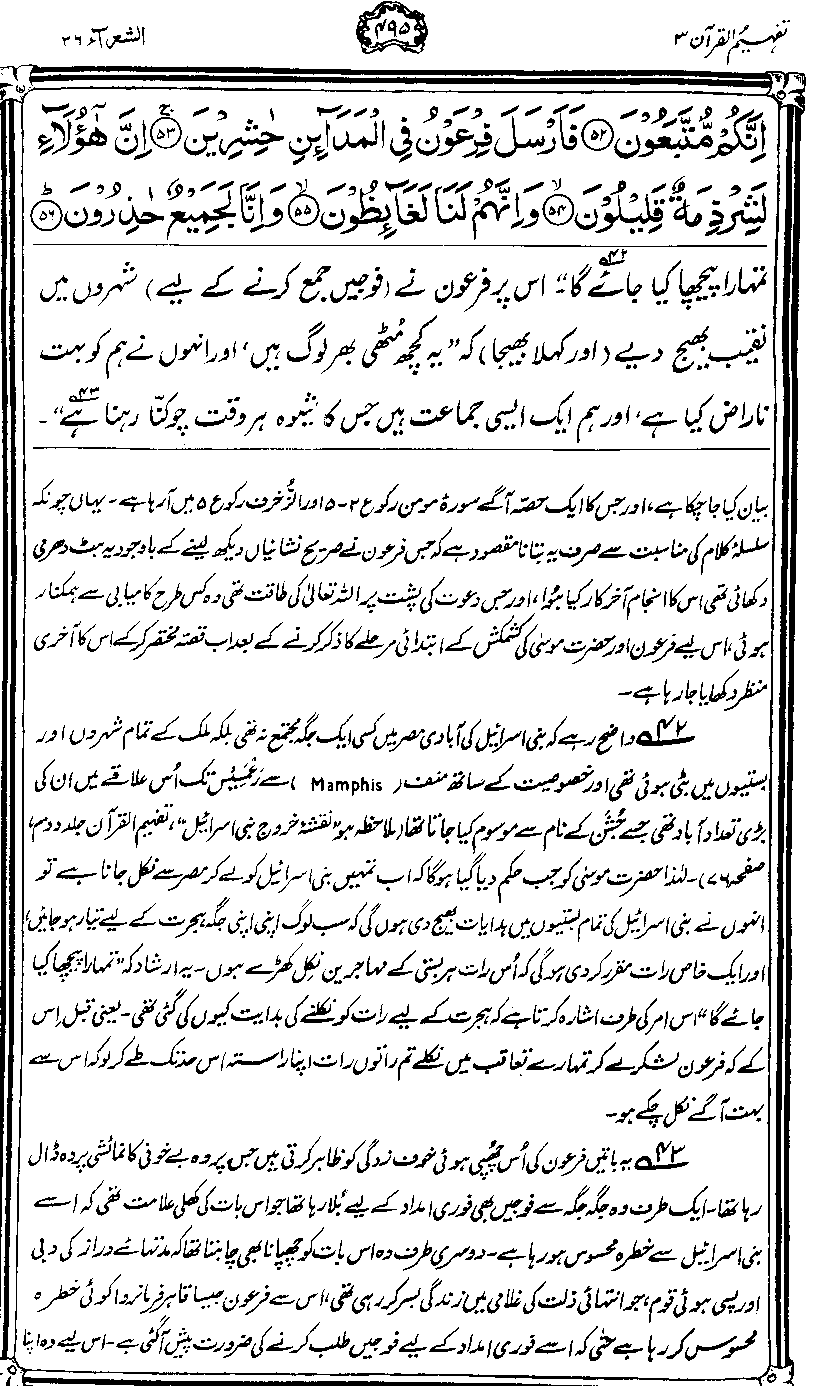 تفہیم القرآن ۳
۴۹۵
الشعرآء ۲۶
اِنَّكُمْ مُّتَّبَعُوْنَ ﴿۵۲﴾ فَاَرْسَلَ فِرْعَوْنُ فِی الْمَدَآىِٕنِ حٰشِرِیْنَ ﴿۵۳﴾ اِنَّ هٰۤؤُلَآءِ
لَشِرْذِمَةٌ قَلِیْلُوْنَ ﴿۵۴﴾ وَاِنَّهُمْ لَنَا لَغَآىِٕظُوْنَ ﴿۵۵﴾ وَاِنَّا لَجَمِیْعٌ حٰذِرُوْنَ ﴿۵۶﴾
تمہارا پیچھا کیا جائے گا“۔۴۲ اس پر فرعون نے (فوجیں جمع کرنے کے لیے) شہروں میں
نقیب بھیج دیے (اور کہلا بھیجا) کہ ”یہ کچھ مُٹھی بھر لوگ ہیں، اور انہوں نے ہم کو بہت
ناراض کیا ہے، اور ہم ایک ایسی جماعت ہیں جس کا شیوہ ہر وقت چوکنّا رہنا ہے“۴۳۔
بیان کیا جا چکا ہے، اور جس کا ایک حصّہ آگے سورۂ مومن رکوع ۲-۵ اور الزُّخرف رکوع ۵ میں آ رہا ہے۔ یہاں چونکہ
سلسلۂ کلام کی مناسبت سے صرف یہ بتانا مقصود ہے کہ جس فرعون نے صریح نشانیاں دیکھ لینے کے باوجود یہ ہٹ دھرمی
دکھائی تھی اس کا انجام آخر کار کیا ہُوا، اور جس دعوت کی پشت پر اللہ تعالیٰ کی طاقت تھی وہ کس طرح کامیابی سے ہمکنار
ہوئی، اس لیے فرعون اور حضرت موسیٰ کی کشمکش کے ابتدائی مرحلے کا ذکر کرنے کے بعد اب قصّہ مختصر کر کے اس کا آخری
منظر دکھایا جا رہا ہے۔
۴۲ واضح رہے کہ بنی اسرائیل کی آبادی مصر میں کسی ایک جگہ مجتمع نہ تھی بلکہ ملک کے تمام شہروں اور
بستیوں میں بٹی ہوئی تھی اور خصوصیت کے ساتھ منف (Mamphis) سے رَعْمَسِیْس تک اُس علاقے میں ان کی
بڑی تعداد آباد تھی جسے جُشَن کے نام سے موسوم کیا جاتا تھا (ملاحظہ ہو ”نقشۂ خروج بنی اسرائیل“، تفہیم القرآن جلد دوم،
صفحہ ۷۶)۔ لہٰذا حضرت موسیٰ کو جب حکم دیا گیا ہوگا کہ اب تمہیں بنی اسرائیل کو لے کر مصر سے نکل جانا ہے تو
انہوں نے بنی اسرائیل کی تمام بستیوں میں ہدایات بھیج دی ہوں گی کہ سب لوگ اپنی اپنی جگہ ہجرت کے لیے تیار ہو جائیں،
اور ایک خاص رات مقرر کر دی ہوگی کہ اُس رات ہر بستی کے مہاجرین نکل کھڑے ہوں۔ یہ ارشاد کہ ”تمہارا پیچھا کیا
جائے گا“ اس امر کی طرف اشارہ کرتا ہے کہ ہجرت کے لیے رات کو نکلنے کی ہدایت کیوں کی گئی تھی۔ یعنی قبل اس
کے کہ فرعون لشکر لے کر تمہارے تعاقب میں نکلے تم راتوں رات اپنا راستہ اس حد تک طے کر لو کہ اس سے
بہت آگے نکل چکے ہو۔
۴۳ یہ باتیں فرعون کی اُس چھپی ہوئی خوف زدگی کو ظاہر کرتی ہیں جس پر وہ بے خوفی کا نمائشی پردہ ڈال
رہا تھا۔ ایک طرف وہ جگہ جگہ سے فوجیں بھی فوری امداد کے لیے بُلا رہا تھا جو اس بات کی کھلی علامت تھی کہ اسے
بنی اسرائیل سے خطرہ محسوس ہو رہا ہے۔ دوسری طرف وہ اس بات کو چھپانا بھی چاہتا تھا کہ مدتہائے دراز کی دبی
اور پسی ہوئی قوم، جو انتہائی ذلت کی غلامی میں زندگی بسر کر رہی تھی، اس سے فرعون جیسا قاہر فرمانروا کوئی خطرہ
محسوس کر رہا ہے حتیٰ کہ اسے فوری امداد کے لیے فوجیں طلب کرنے کی ضرورت پیش آ گئی ہے۔ اس لیے وہ اپنا